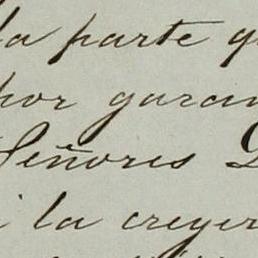 la parte q
por garan
Señores D
i la creyer